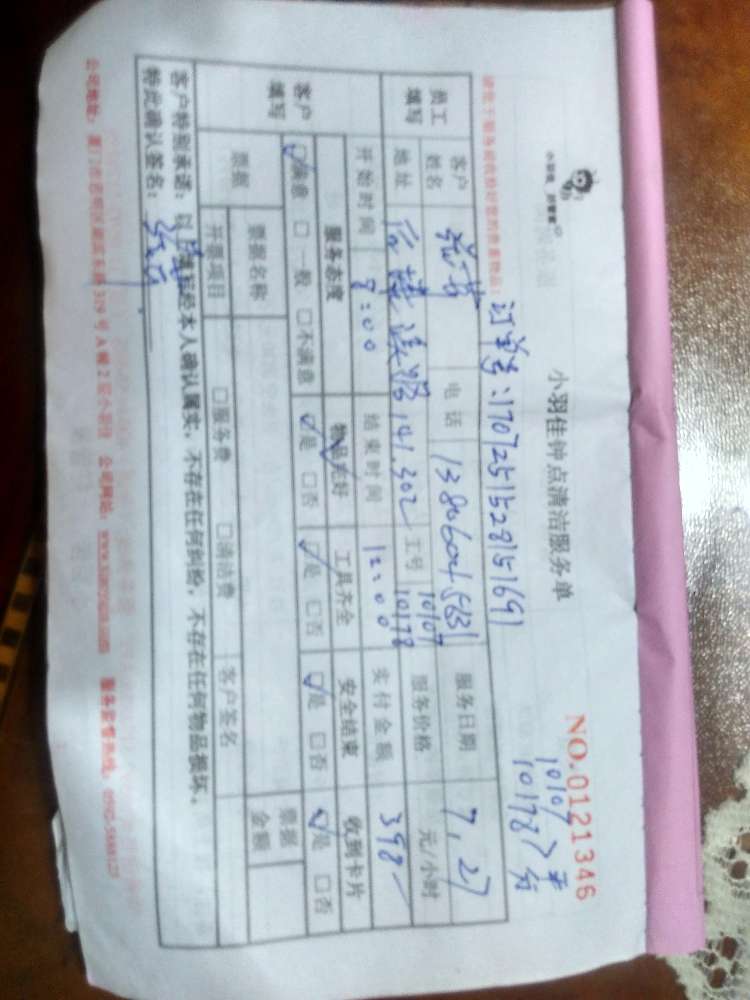 小羽佳 好管家
小羽佳钟点清洁服务单
NO.0121346
10107
10178 平分
订单号:1707251528151691
员工填写
客户姓名
电话
服务日期 7.27
地址
141.302
工号 10107
10178
服务价格 元/小时
开始时间 8:00
结束时间 12:00
实付金额 398
客户填写
服务态度 物品完好 工具齐全 安全结束 收到卡片
☑满意 □一般 □不满意 ☑是 □否 ☑是 □否 ☑是 □否 ☑是 □否
票据 票据名称 票据金额
开票项目 □服务费 □清洁费 客户签名
客户特别承诺:以上填写经本人确认属实,不存在任何纠纷,不存在任何物品损坏,
特此确认签名:
公司地址:厦门市思明区 319号A幢2层小羽佳 公司网站: 服务监督热线: